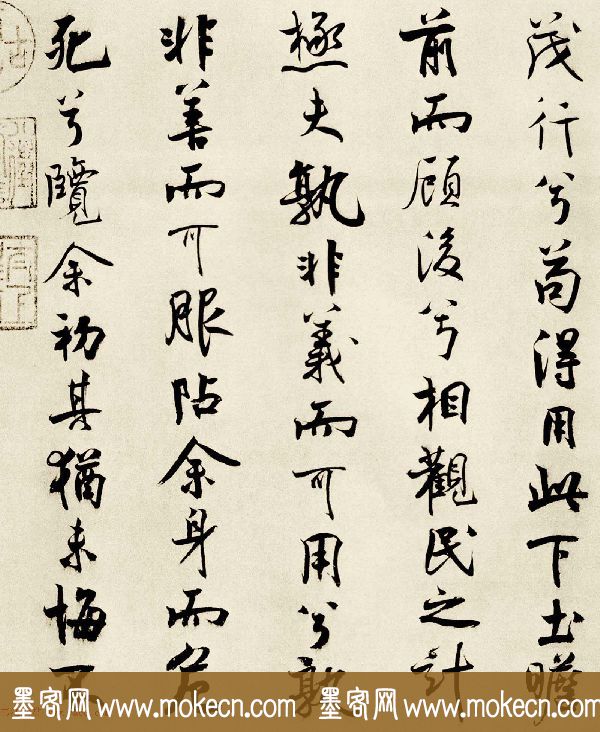 茂行兮苟得用此下土瞻
前而顧後兮相觀民之計
極夫孰非義而可用兮孰
非善而可服阽余身而危
死兮覽余初其猶未悔不
墨客网www.mokecn.com 墨客网www.mokecn.com